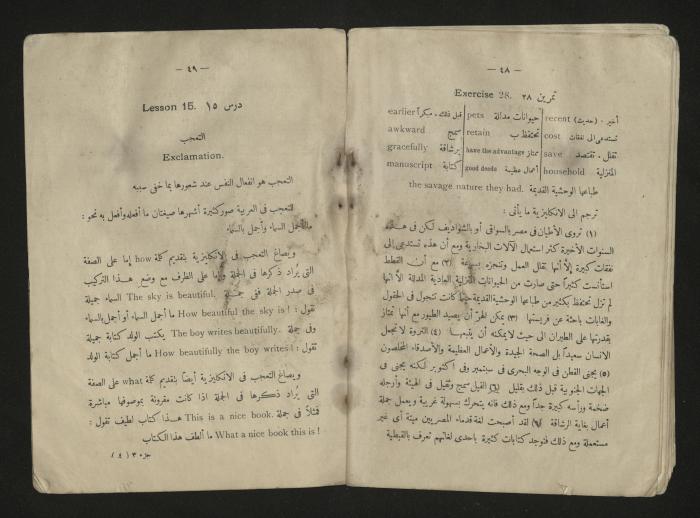 — ٤٨ —
Exercise 28. تمرين ٢٨
أخير . (حديث) recent حيوانات مدللة pets قبل ذلك . مبكراً earlier
تستدعى الى نفقات cost تحتفظ ب retain سمج awkward
تقلل . تقتصد save تمتاز have the advantage برشاقة gracefully
المنزلية household أعمال عظيمة good deeds كتابة manuscript
طباعها الوحشية القديمة .the savage nature they had
ترجم الى الانكليزية ما يأتى :
(١) تروى الأطيان فى مصر بالسواقى أو بالشواديف لكن فى هذه
السنوات الأخيرة كثر استعمال الآلات البخارية ومع أن هذه تستدعى إلى
نفقات كبيرة إلا أنها تقلل العمل وتنجزه بسرعة (٢) مع أن القطط
استأنست كثيراً حتى صارت من الحيوانات المنزلية العادية المدللة الا انها
لم تزل تحتفظ بكثير من طباعها الوحشية القديمة حينما كانت تتجول فى الحقول
والغابات باحثة عن فريستها (٣) يمكن الهرّ أن يصيد الطيور مع أنها تمتاز
بقدرتها على الطيران الى حيث لا يمكنه أن يتبعها (٤) الثروة لا تجعل
الانسان سعيداً بل الصحة الجيدة والأعمال العظيمة والأصدقاء المخلصون
(٥) يجنى القطن فى الوجه البحرى فى سبتمبر وفى أكتوبر لكنه يجنى فى
الجهات الجنوبية قبل ذلك بقليل (٦) الفيل سمج وثقيل فى الهيئة وأرجله
ضخمة ورأسه كبيرة جداً ومع ذلك فانه يتحرك بسهولة غريبة ويعمل جملة
أعمال بغاية الرشاقة (٧) لقد أصبحت لغة قدماء المصريين ميتة أى غير
مستعملة ومع ذلك فتوجد كتابات كثيرة باحدى لغاتهم تعرف بالقبطية
— ٤٩ —
Lesson 15. درس ١٥
التعجب
Exclamation.
التعجب هو انفعال النفس عند شعورها بما خفى سببه
التعجب فى العربية صور كثيرة أشهرها صيغتان ما أفعله وأفعل به نحو :
ما أجمل السماء وأجمل بالسماء
ويصاغ التعجب فى الانكليزية بتقديم كلمة how إما على الصفة
التى يُراد ذكرها فى الجملة وإما على الظرف مع وضع هذا التركيب
فى صدر الجملة ففى جملة .The sky is beautiful السماء جميلة
تقول : ! How beautiful the sky is ما أجمل السماء أو أجمل بالسماء
وفى جملة .The boy writes beautifully يكتب الولد كتابة جميلة
تقول : ! How beautifully the boy writes ما أجمل كتابة الولد
ويصاغ التعجب فى الانكليزية أيضاً بتقديم كلمة what على الصفة
التى يُراد ذكرها فى الجملة اذا كانت مقرونة بموصوفها مباشرة
فمثلاً فى جملة .This is a nice book هذا كتاب لطيف تقول :
! What a nice book this is ما ألطف هذا الكتاب
جزء ٣ ( ٤ )